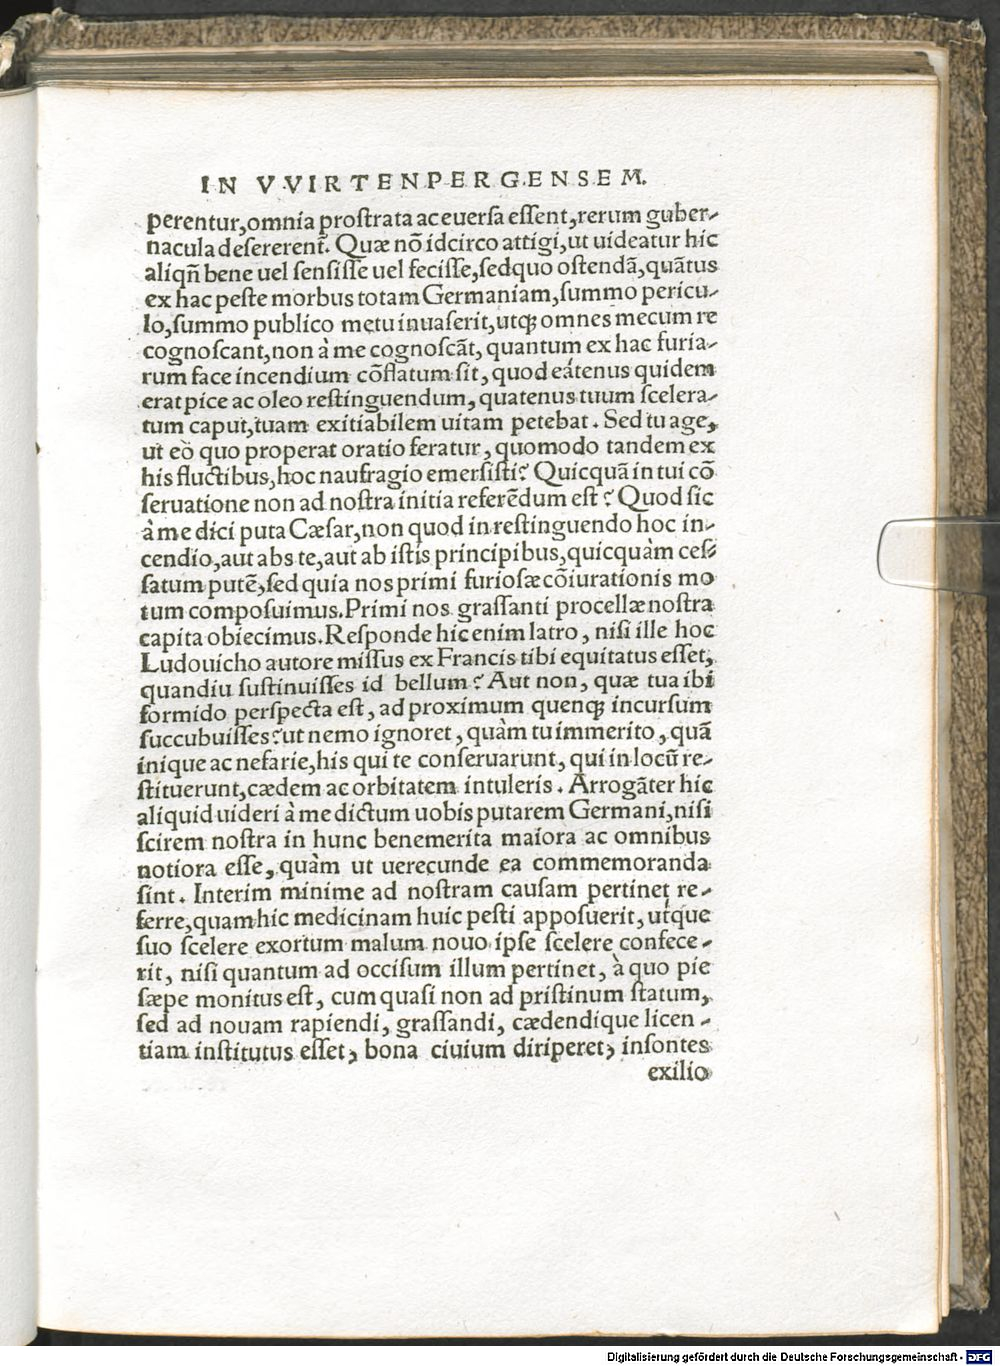 IN VVIRTENPERGENSEM.
perentur,omnia proſtrata ac euerſa eſſent,rerum guber-
nacula deſererent̃. Quæ nõ idcirco attigi,ut uideatur hic
aliqñ bene uel ſenſiſſe uel feciſſe,ſedquo oſtendã,quãtus
ex hac peſte morbus totam Germaniam,ſummo pericu-
lo,ſummo publico metu inuaſerit,utqȝ omnes mecum re
cognoſcant,non à me cognoſcãt, quantum ex hac furia-
rum face incendium cõflatum ſit, quod eátenus quidem
erat pice ac oleo reſtinguendum, quatenus tuum ſcelera-
tum caput,tuam exitiabilem uitam petebat. Sed tu age,
ut eò quo properat oratio feratur, quomodo tandem ex
his fluctibus,hoc naufragio emerſiſti? Quicquã in tui cõ
ſeruatione non ad noſtra initia referẽdum eſt? Quod ſic
à me dici puta Cæſar,non quod in reſtinguendo hoc in-
cendio,aut abs te,aut ab iſtis principibus,quicquàm ceſ-
ſatum putẽ,ſed quia nos primi furioſæ cõiurationis mo
tum compoſuimus.Primi nos graſſanti procellæ noſtra
capita obiecimus.Reſponde hic enim latro, niſi ille hoc
Ludouicho autore miſſus ex Francis tibi equitatus eſſet,
quandiu ſuſtinuiſſes id bellum? Aut non, quæ tua ibi
formido perſpecta eſt, ad proximum quenqȝ incurſum
ſuccubuiſſes?ut nemo ignoret, quàm tu immerito, quã
inique ac nefarie,his qui te conſeruarunt, qui in locũ re-
ſtituerunt,cædem ac orbitatem intuleris. Arrogãter hic
aliquid uideri à me dictum uobis putarem Germani,niſi
ſcirem noſtra in hunc benemerita maiora ac omnibus
notiora eſſe, quàm ut uerecunde ea commemoranda
ſint. Interim minime ad noſtram cauſam pertinet re-
ferre,quam hic medicinam huic peſti appoſuerit, utque
ſuo ſcelere exortum malum nouo ipſe ſcelere confece-
rit, niſi quantum ad occiſum illum pertinet, à quo pie
ſæpe monitus eſt, cum quaſi non ad priſtinum ſtatum,
ſed ad nouam rapiendi, graſſandi, cædendique licen-
tiam inſtitutus eſſet, bona ciuium diriperet, inſontes
exilio
Digitalisierung gefördert durch die Deutsche Forschungsgemeinschaft - DFG